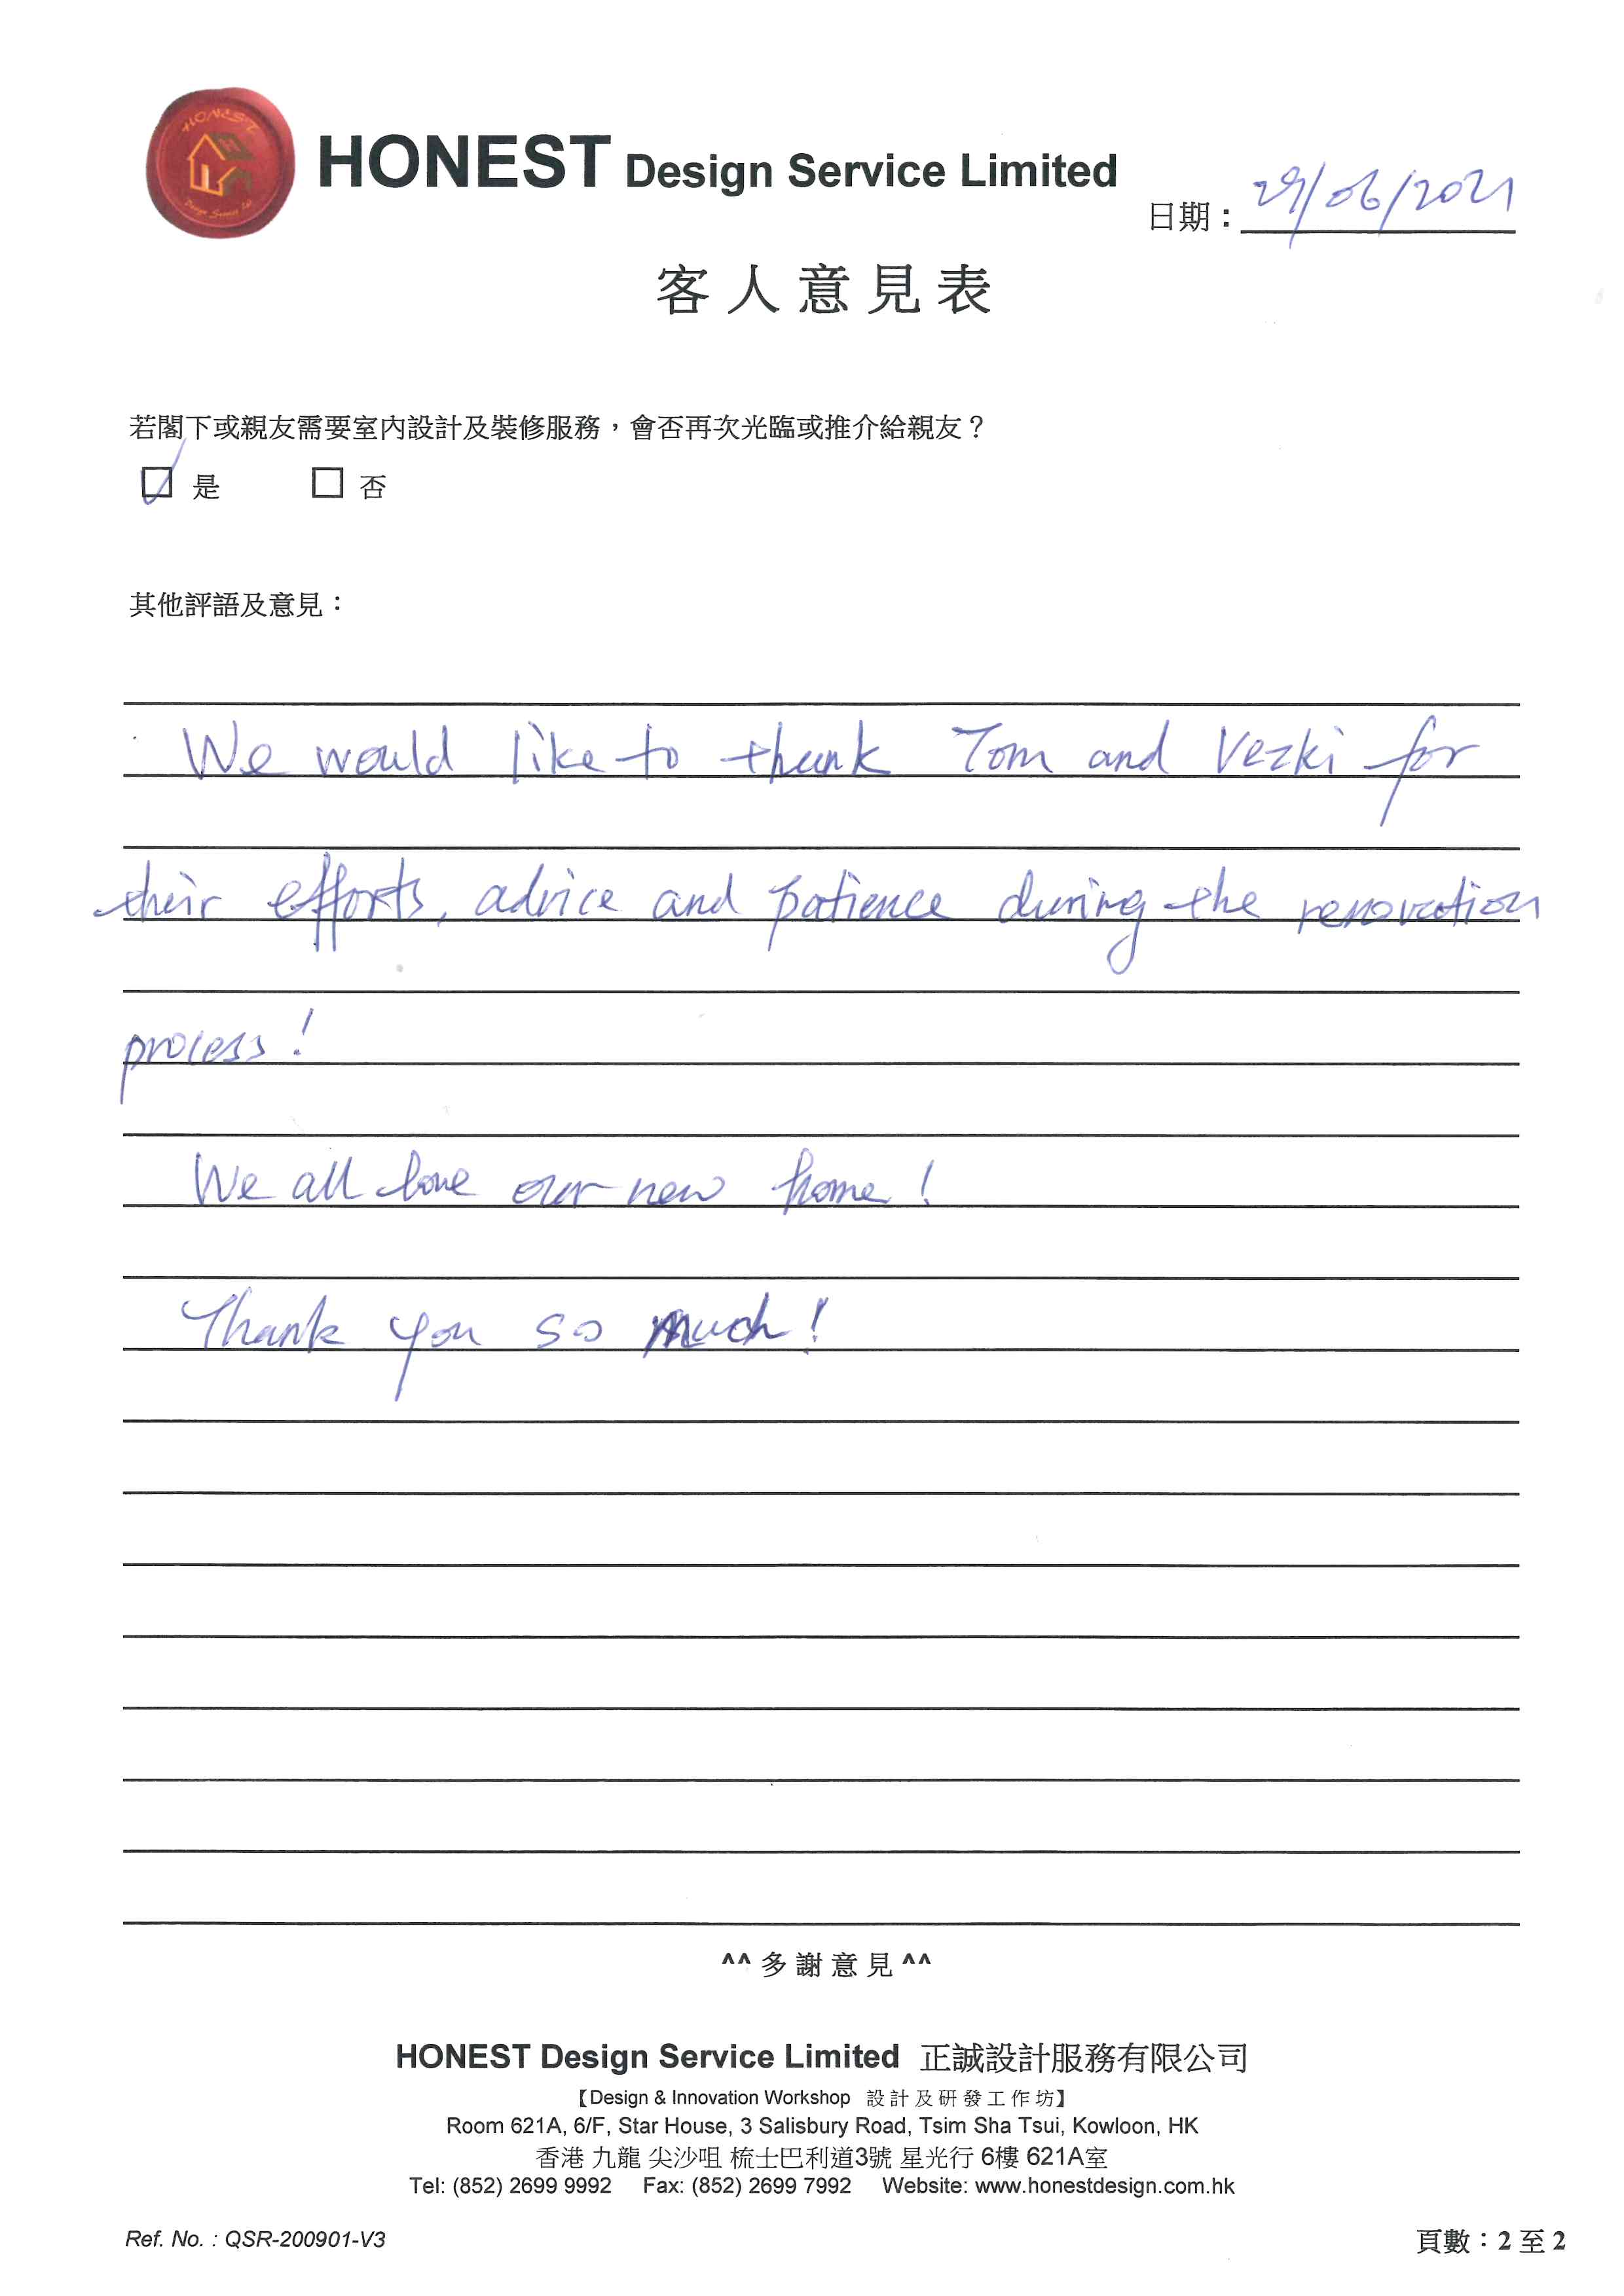 HONEST
Design Service Ltd
HONEST Design Service Limited
日期：29/06/2021
客人意見表
若閣下或親友需要室內設計及裝修服務，會否再次光臨或推介給親友？
☑ 是 ☐ 否
其他評語及意見：
We would like to thank Tom and Vezki for
their efforts, advice and patience during the renovation
process!
We all love our new home!
Thank you so much!
^^多謝意見^^
HONEST Design Service Limited 正誠設計服務有限公司
【Design & Innovation Workshop 設計及研發工作坊】
Room 621A, 6/F, Star House, 3 Salisbury Road, Tsim Sha Tsui, Kowloon, HK
香港 九龍 尖沙咀 梳士巴利道3號 星光行 6樓 621A室
Tel: (852) 2699 9992 Fax: (852) 2699 7992 Website: www.honestdesign.com.hk
Ref. No. : QSR-200901-V3
頁數：2 至 2